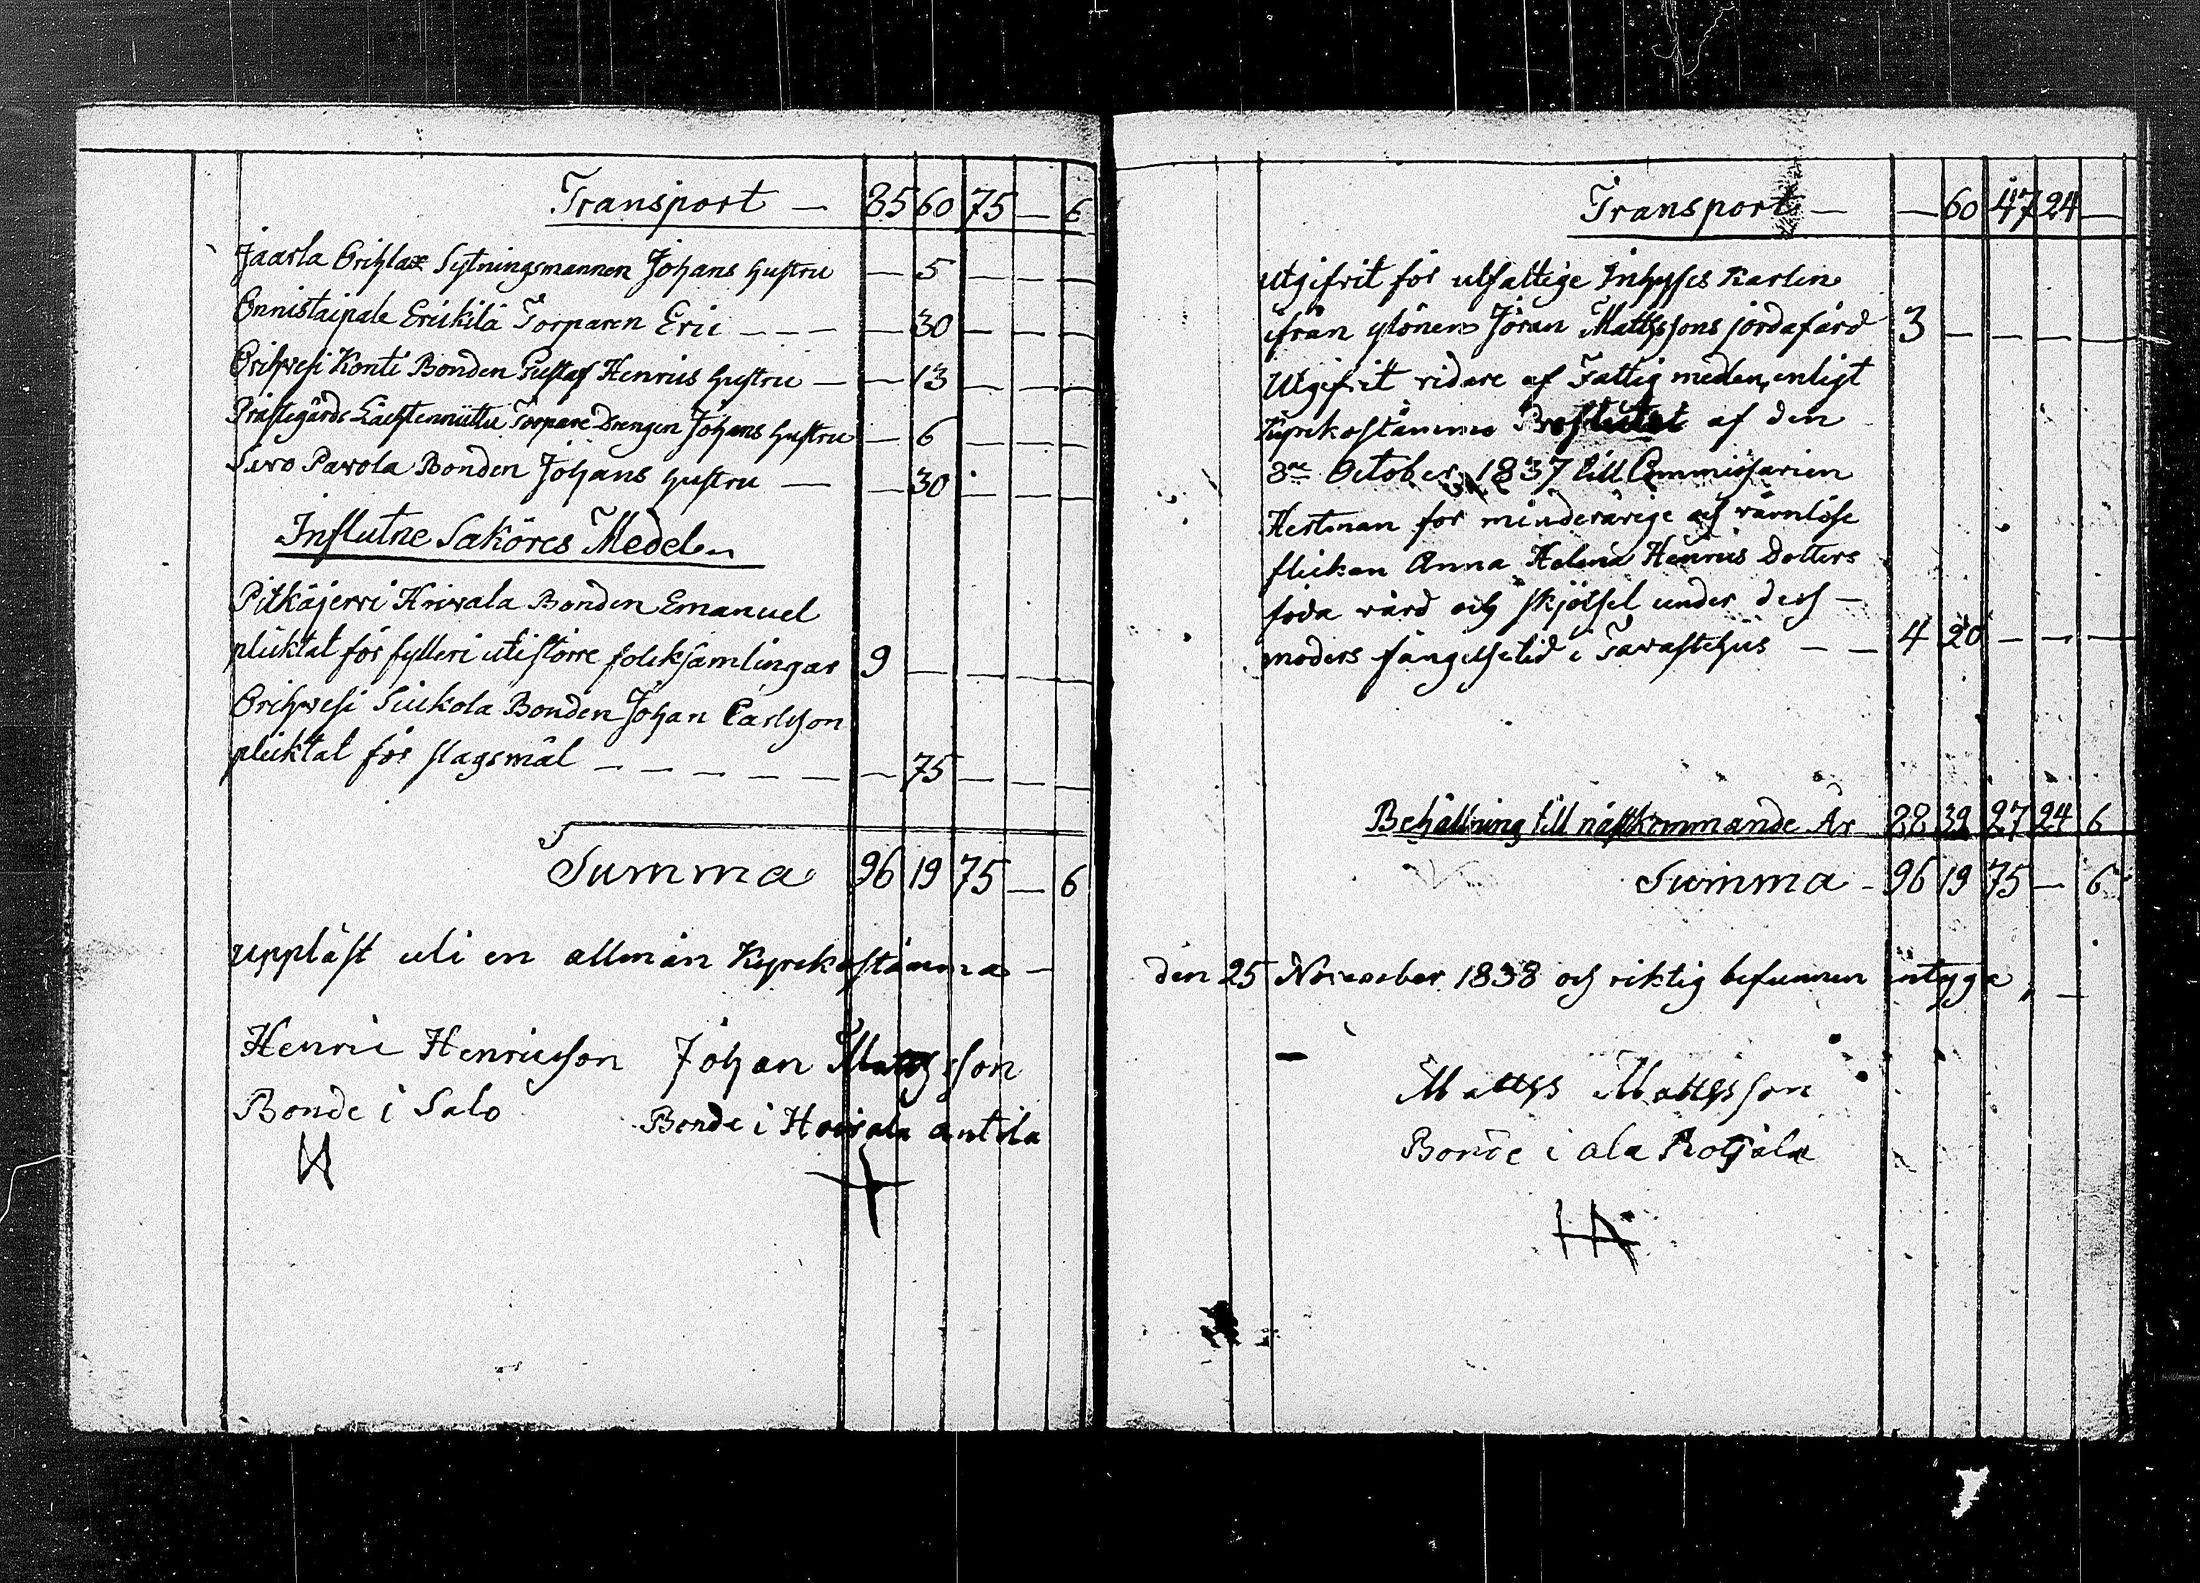 Transport — 85 60 75 — 6
Jaarla Orihlax Sytningsmannen Johans hustru — 5 — — —
Onnistaipale Erickilä Torparen Eric — — — — 30 — — —
Orihvesi Konti Bonden Gustaf Henrics hustru — — 13 — — —
Prästegårds Torpare Drengen Johans hustru — 6 — — —
Suvo Pavola Bonden Johans hustru — — 30 — — —
Influtne Saköres Medel
Pitkäjervi Hirvala Bonden Emanuel
pliktat för fylleri uti större folcksamlingar 9 — — — —
Orihvesi Siukola Bonden Johan Carlsson
pliktat för slagsmål — — — — — — 75 — — —
Summa 96 19 75 — 6
uppläst uti en allmän Kyrckostämma —
Henric Henricsson Johan Mattsson
Bonde i Salo Bonde i Hoivala Antila
Transport — — 60 47 24 —
Utgifvit för utfattige Inhyses Karlen
ifrån Ylönen Jöran Mattssons jordafärd 3 — — — —
Utgifvit vidare af Fattig medlen, enligt
Kyrckostämmo Beslutet af den
8de October 1837 till Commissarien
Hertman för minderårige och värnlöse
flickan Anna Helena Henrics Dotters
föda vård och skjötsel under dess —
moders fängelsetid i Tavastehus — — 4 20 — — —
Behållning till nästkommande År 28 39 27 24 6
Summa - 96 19 75 — 6
den 25 November 1838 och riktig befunnen intyga, —
Matts Mattsson
Bonde i ala Rotjala